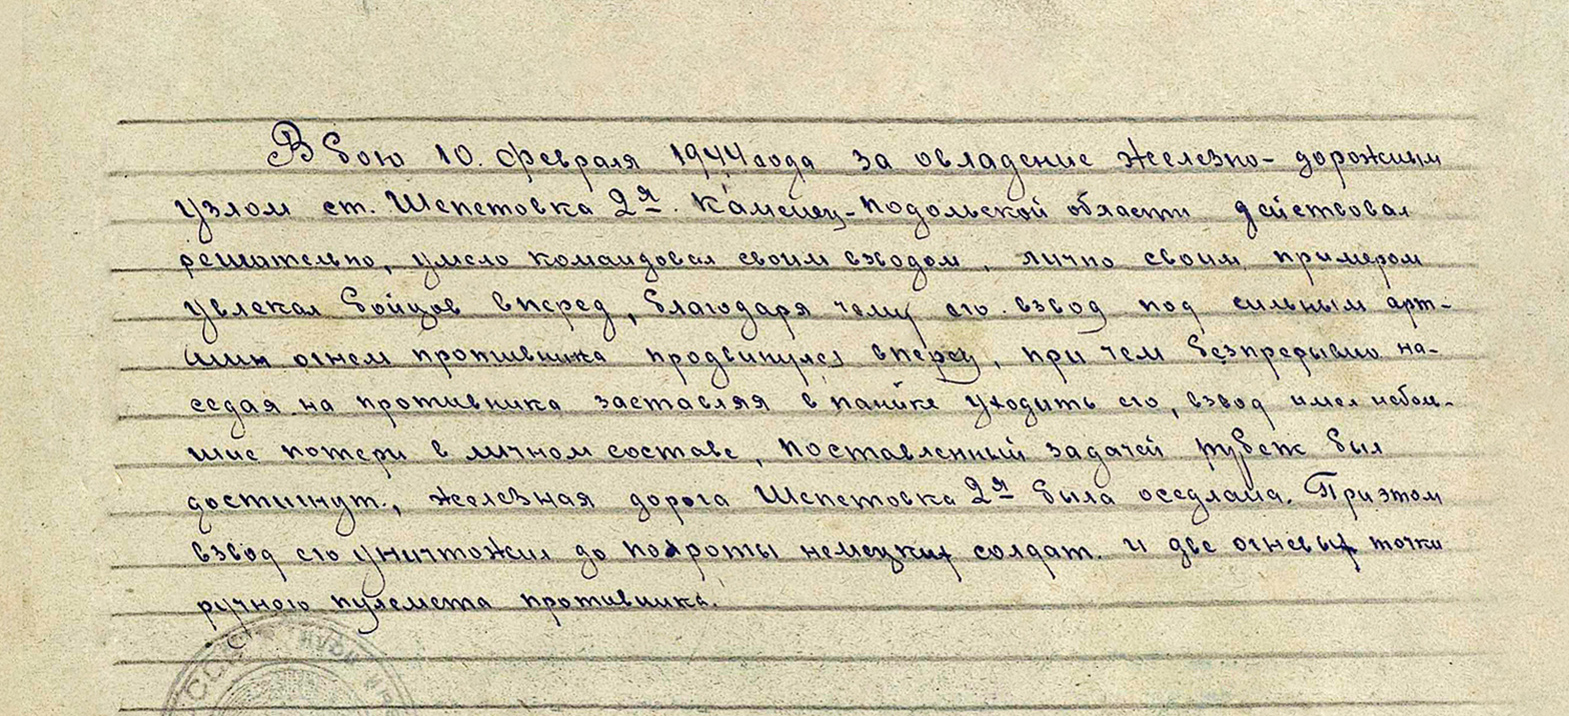 В бою 10. февраля 1944 года за овладение железно- дорожным
узлом ст. Шепетовка 2я. Каменец-подольской области действовал
решательно, умело командовал своим взводом, лично своим примером
увлекал бойцов вперед, благодаря чему его. взвод под сильным арт-
мин огнем противника продвинулся вперед, при чем безпрерывно на-
седая на противника заставляя в панике уходить его, взвод имел неболь-
шие потери в личном составе, поставленный задачей рубеж был
достигнут., железная дорога Шепетовка 2я была оседлана. При этом
взвод его уничтожил до полроты немецких солдат. и две огневых точки
ручного пулемета противника.
ССО